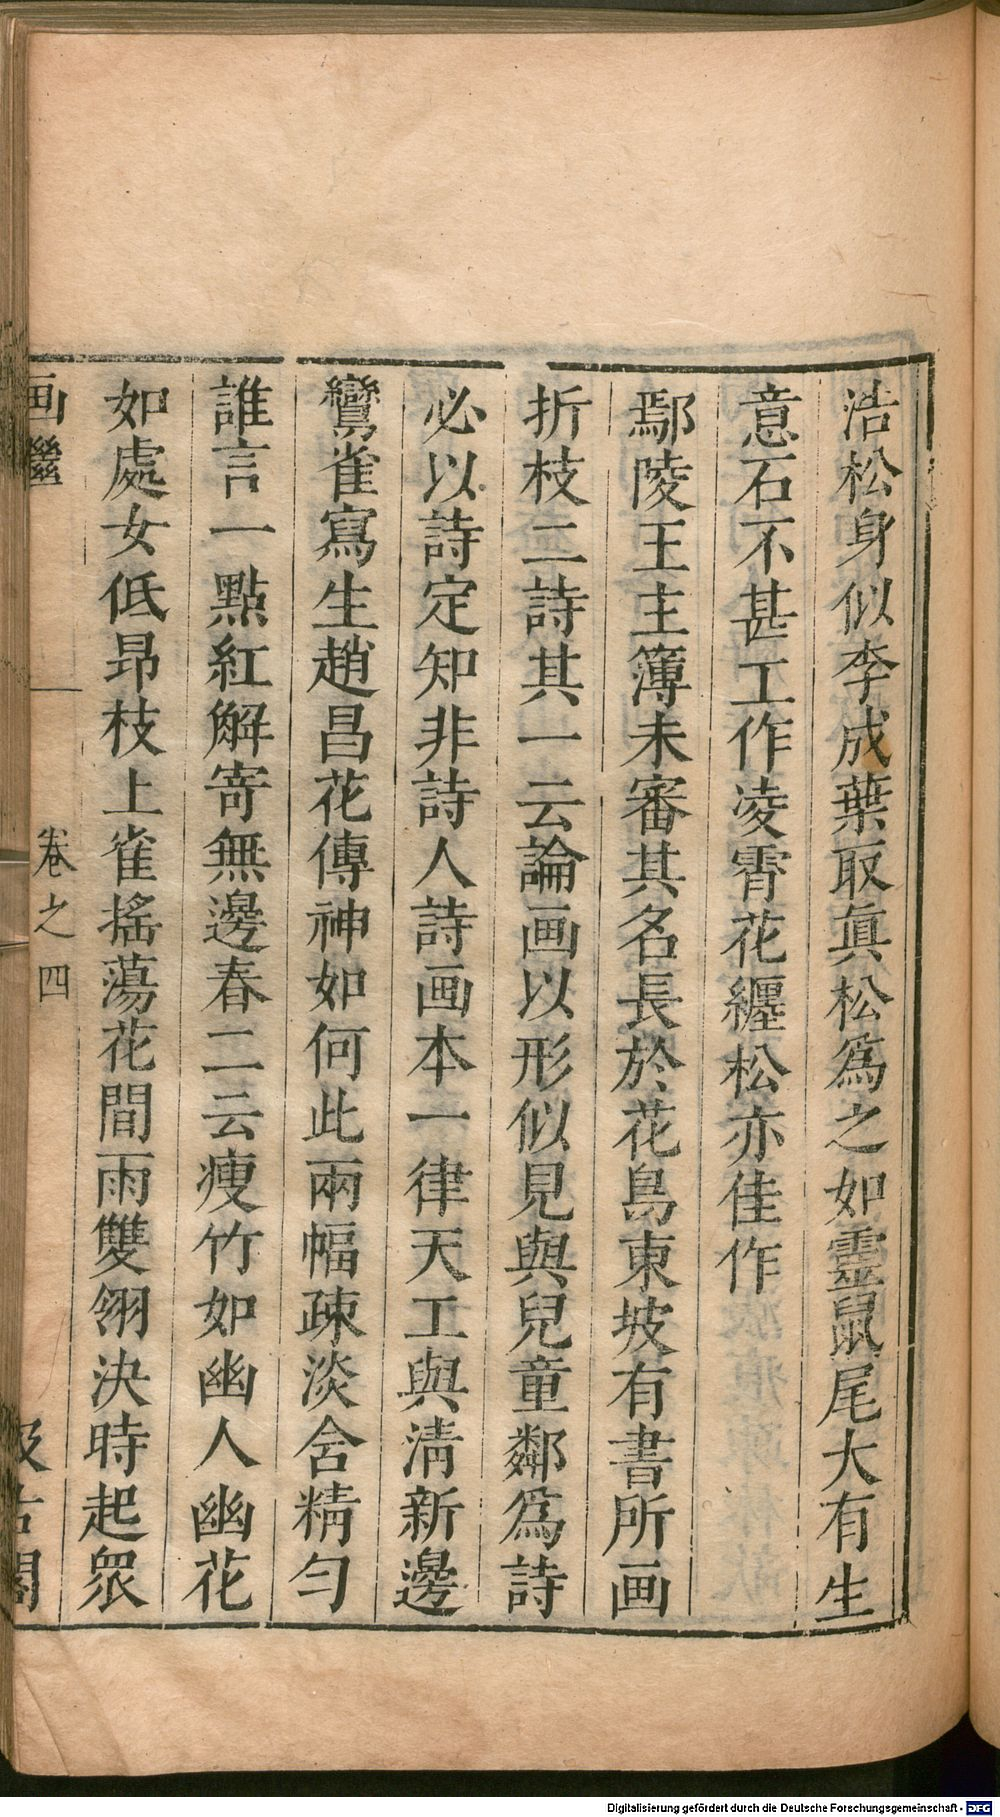 浩松身似李成葉取眞松爲之如靈鼠尾大有生
意石不甚工作凌霄花纏松亦佳作
鄢陵王主簿未審其名長於花鳥東坡有書所画
折枝二詩其一云論画以形似見與兒童鄰爲詩
必以詩定知非詩人詩画本一律天工與淸新邊
鸞雀寫生趙昌花傳神如何此兩幅疎淡含精勻
誰言一點紅解寄無邊春二云瘦竹如幽人幽花
如處女低昂枝上雀搖蕩花間雨雙翎決時起衆
画繼 卷之四 汲古閣
Digitalisierung gefördert durch die Deutsche Forschungsgemeinschaft - DFG